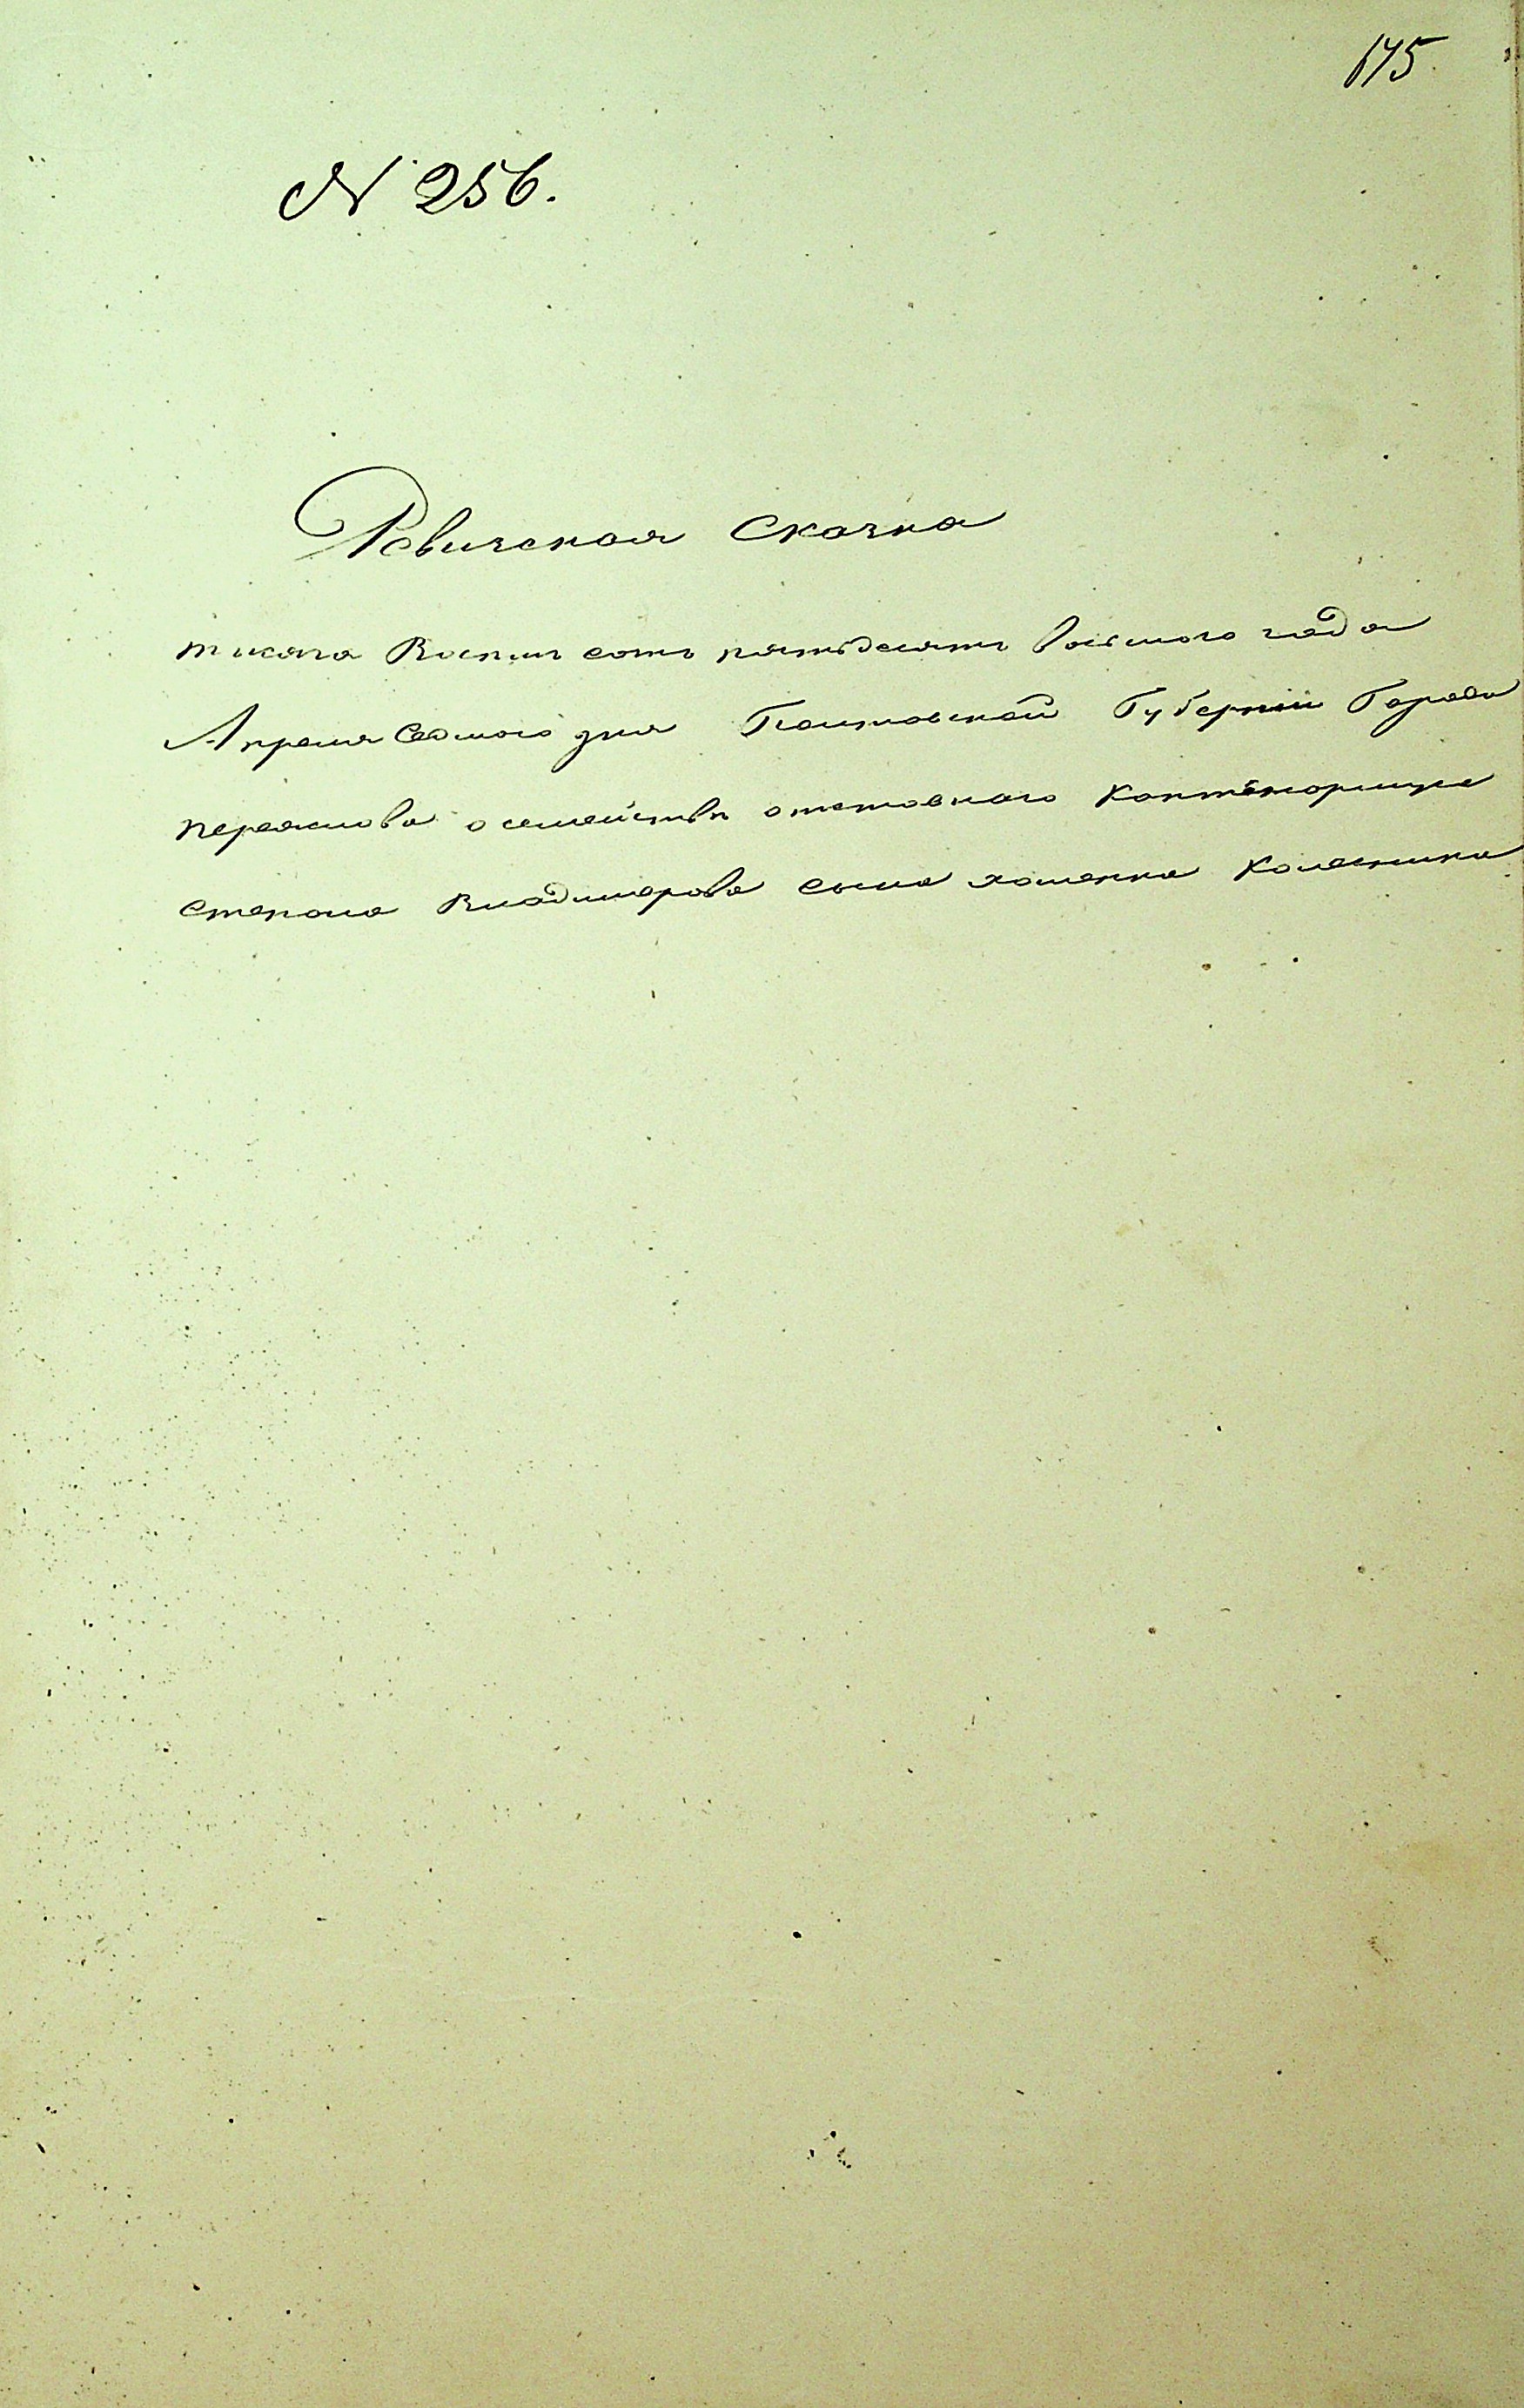 675.
N 256.
Ревизская Сказка
тисяча Восемь сотъ пятьдесятъ восьмого года
Апреля Седмого дня Полтавской Губернии Города
переяслова о семействе отставного
степана Владимерова сына хоменка Колесника